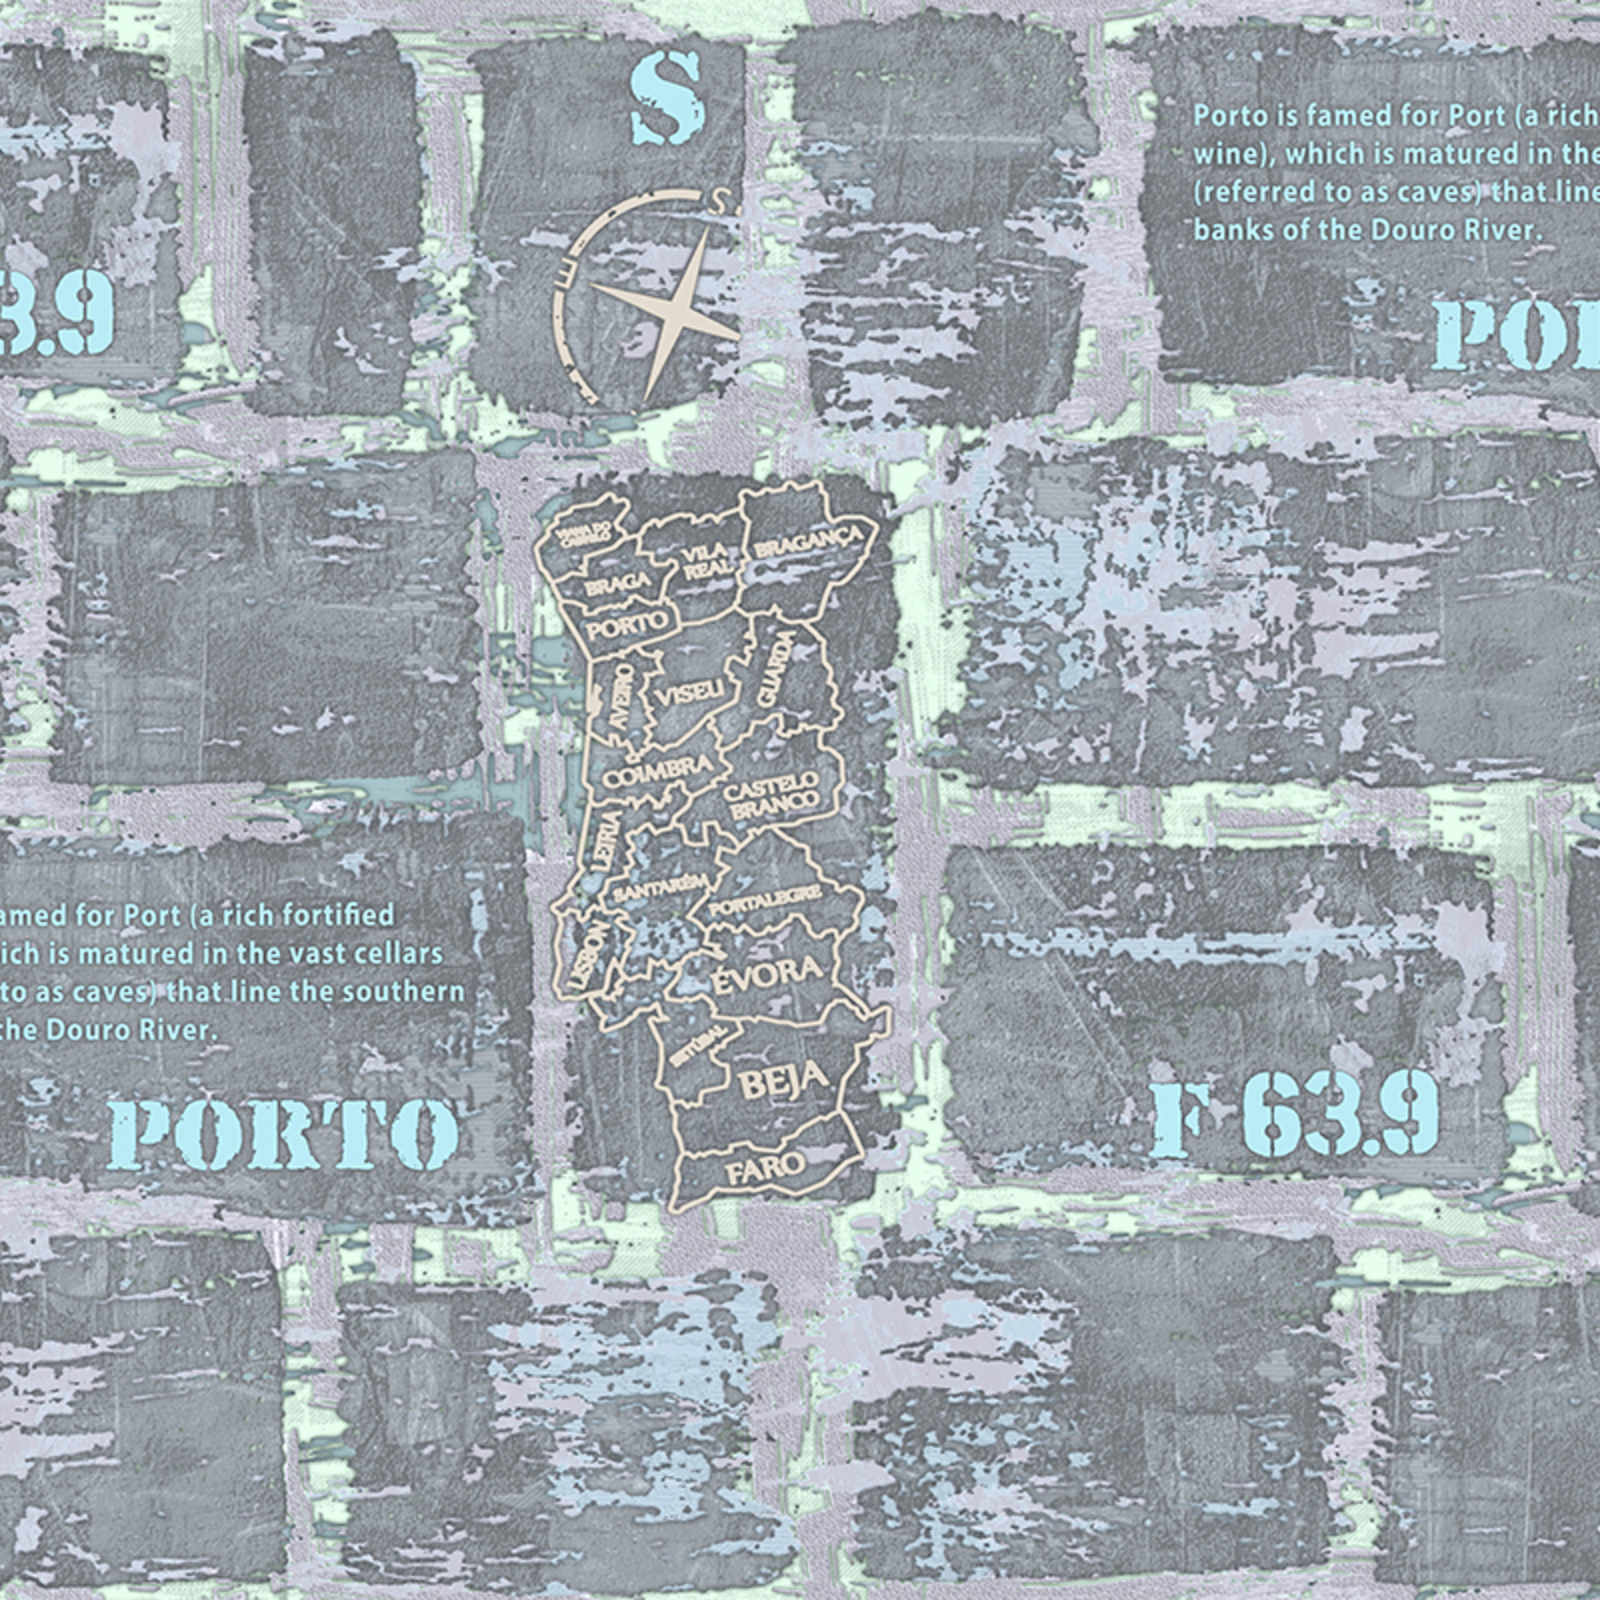 S
Porto is famed for Port (a rich
wine), which is matured in the
(referred to as caves) that line
banks of the Douro River.
S
E
3.9
POR
VIANA DO
CASTELO
BRAGA
VILA
REAL
BRAGANÇA
PORTO
AVEIRO
VISEU
GUARDA
COIMBRA
CASTELO
BRANCO
LEIRIA
SANTARÉM
PORTALEGRE
LISBON
ÉVORA
SETÚBAL
BEJA
FARO
amed for Port (a rich fortified
ich is matured in the vast cellars
to as caves) that line the southern
the Douro River.
PORTO
F 63.9